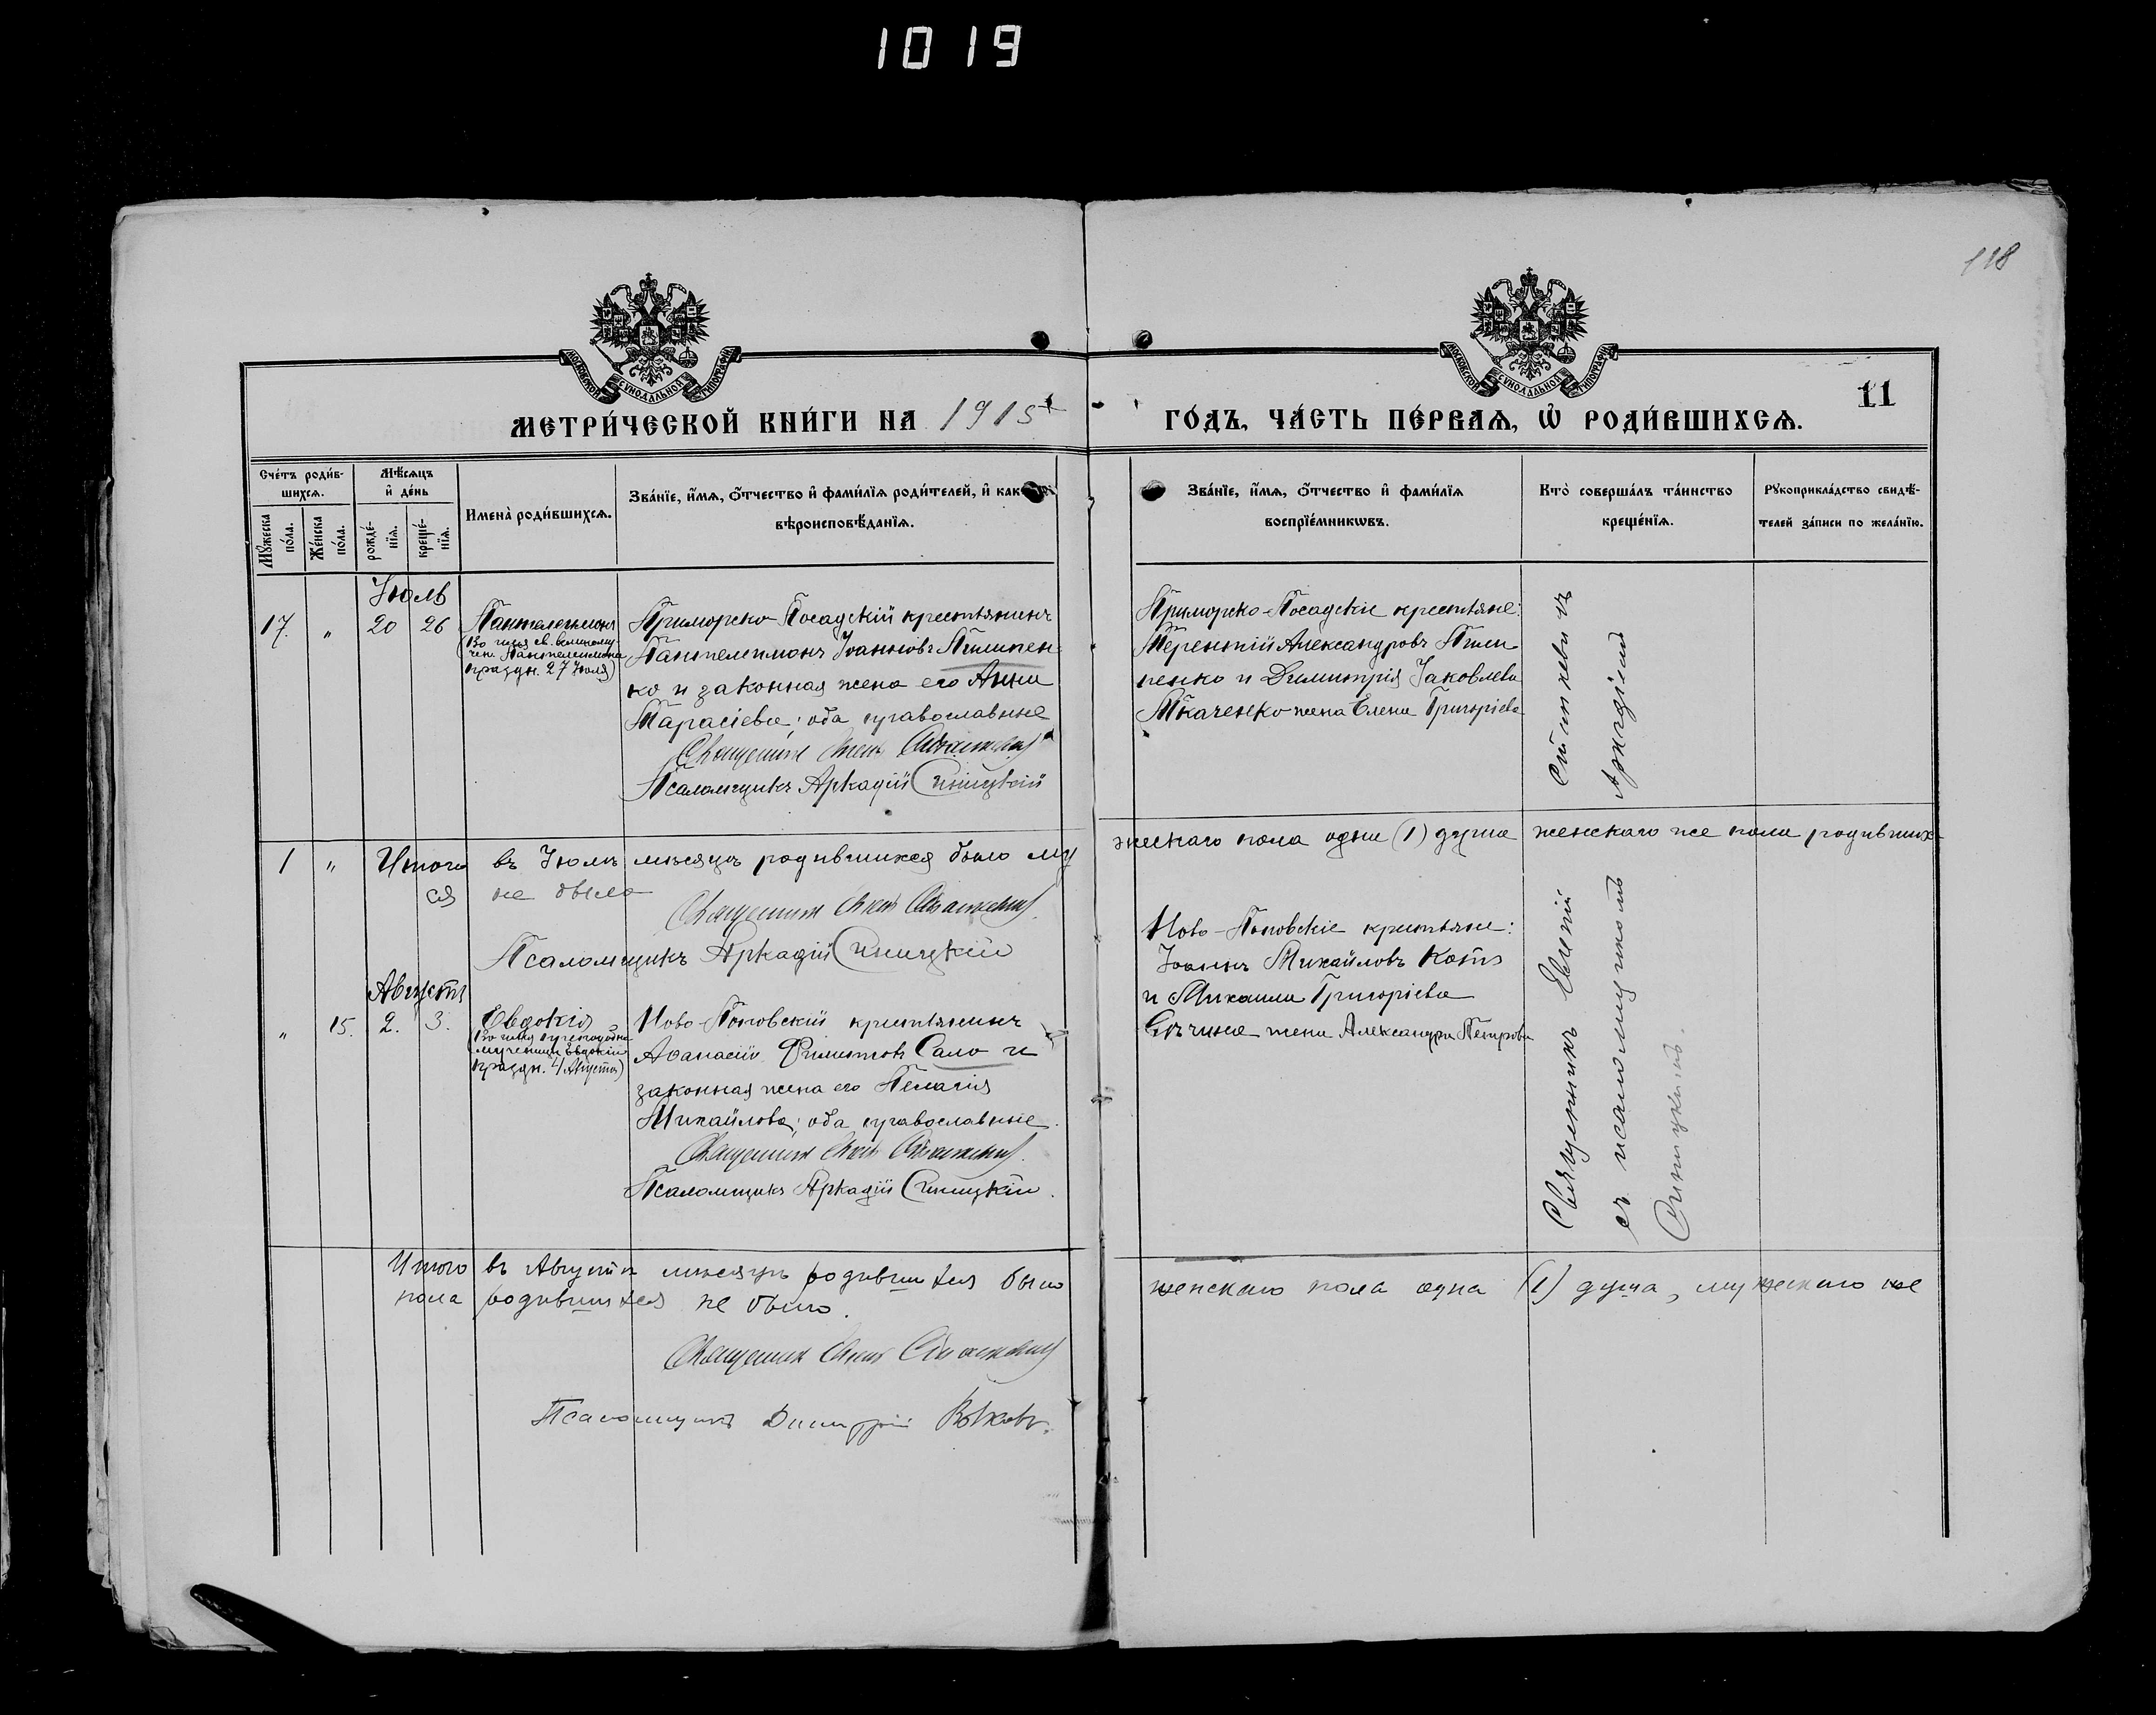 1019
118
МОСКОВСКОЙ СУНОДАЛЬНОЙ ТИПОГРАФІИ
МОСКОВСКОЙ СУНОДАЛЬНОЙ ТИПОГРАФІИ
11
МЕТРИ́ЧЕСКОЙ КНИ́ГИ НА 1915
ГО́ДЪ, ЧА́СТЬ ПЕ́РВАѦ, Ѽ РОДИ́ВШИХСѦ.
Сче́тъ роди́в-
шихсѧ.
Мѣ́сѧцъ
и҆ де́нь
Мꙋ́жеска по́ла.
Же́нска по́ла.
рожде́-нїѧ.
креще́-нїѧ.
Имена̀ роди́вшихсѧ.
Зва́нїе, и҆́мѧ, ѻ҆́тчество и҆ фами́лїѧ роди́телей, и҆ как
вѣроисповѣ́данїѧ.
Зва́нїе, и҆́мѧ, ѻ҆́тчество и҆ фами́лїѧ
воспрїе́мникѡвъ.
Кто̀ соверша́лъ та́инство
креще́нїѧ.
Рꙋкоприкла́дство свидѣ́-
телей за́писи по жела́нїю.
Іюль
17. " 20 26
Пантелеимонъ
(Во имя св. великому-
чен. Пантелеимона
праздн. 27 Іюля)
Приморско-Посадскій крестьянинъ
Пантелеимонъ Іоанновъ Пилипен-
ко и законная жена его Анна
Тарасіева; оба православные
Священникъ
Псаломщикъ Аркадій Синицкій
Приморско-Посадскіе крестьяне:
Терентій Александровъ Пили
пенко и Димитрія Іаковлева
Ткаченко жена Елена Григоріева
Аркадіемъ
1 " Итого въ Іюлѣ мѣсяцѣ родившихся было му
жескаго пола одна (1) душа женскаго же пола родивших-
ся не было
Священникъ
Псаломщикъ Аркадій Синицкій
Августъ
" 15. 2. 3.
Евдокія
(Во имя преподобно
мученицы Евдокіи
праздн. 4 Августа)
Ново-Поповскій крестьянинъ
Аѳанасій Филиповъ Сало и
законная жена его Пелагія
Михайлова; оба православные.
Священникъ
Псаломщикъ Аркадій Синицкій.
Ново-Поповскіе крестьяне:
Іоаннъ Михайловъ Котъ
и Михаила Григоріева
жена Александра Петрова
Священникъ
съ псаломщикомъ
Синицкимъ.
Итого въ Августѣ мѣсяцѣ родившихся было
женскаго пола одна (1) душа, мужескаго же
пола родившихся не было.
Священникъ
Псаломщикъ Димитрій